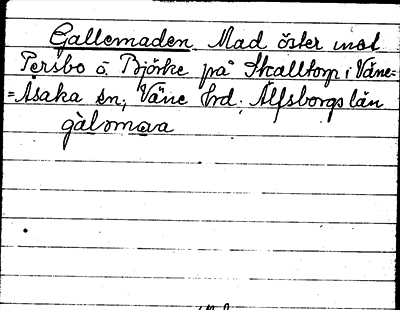 Gallemaden. Mad öster mot
Persbo o. Björke på Skalltorp i Väne-
=Åsaka sn, Väne hrd. Älfsborgs län
gàlomava